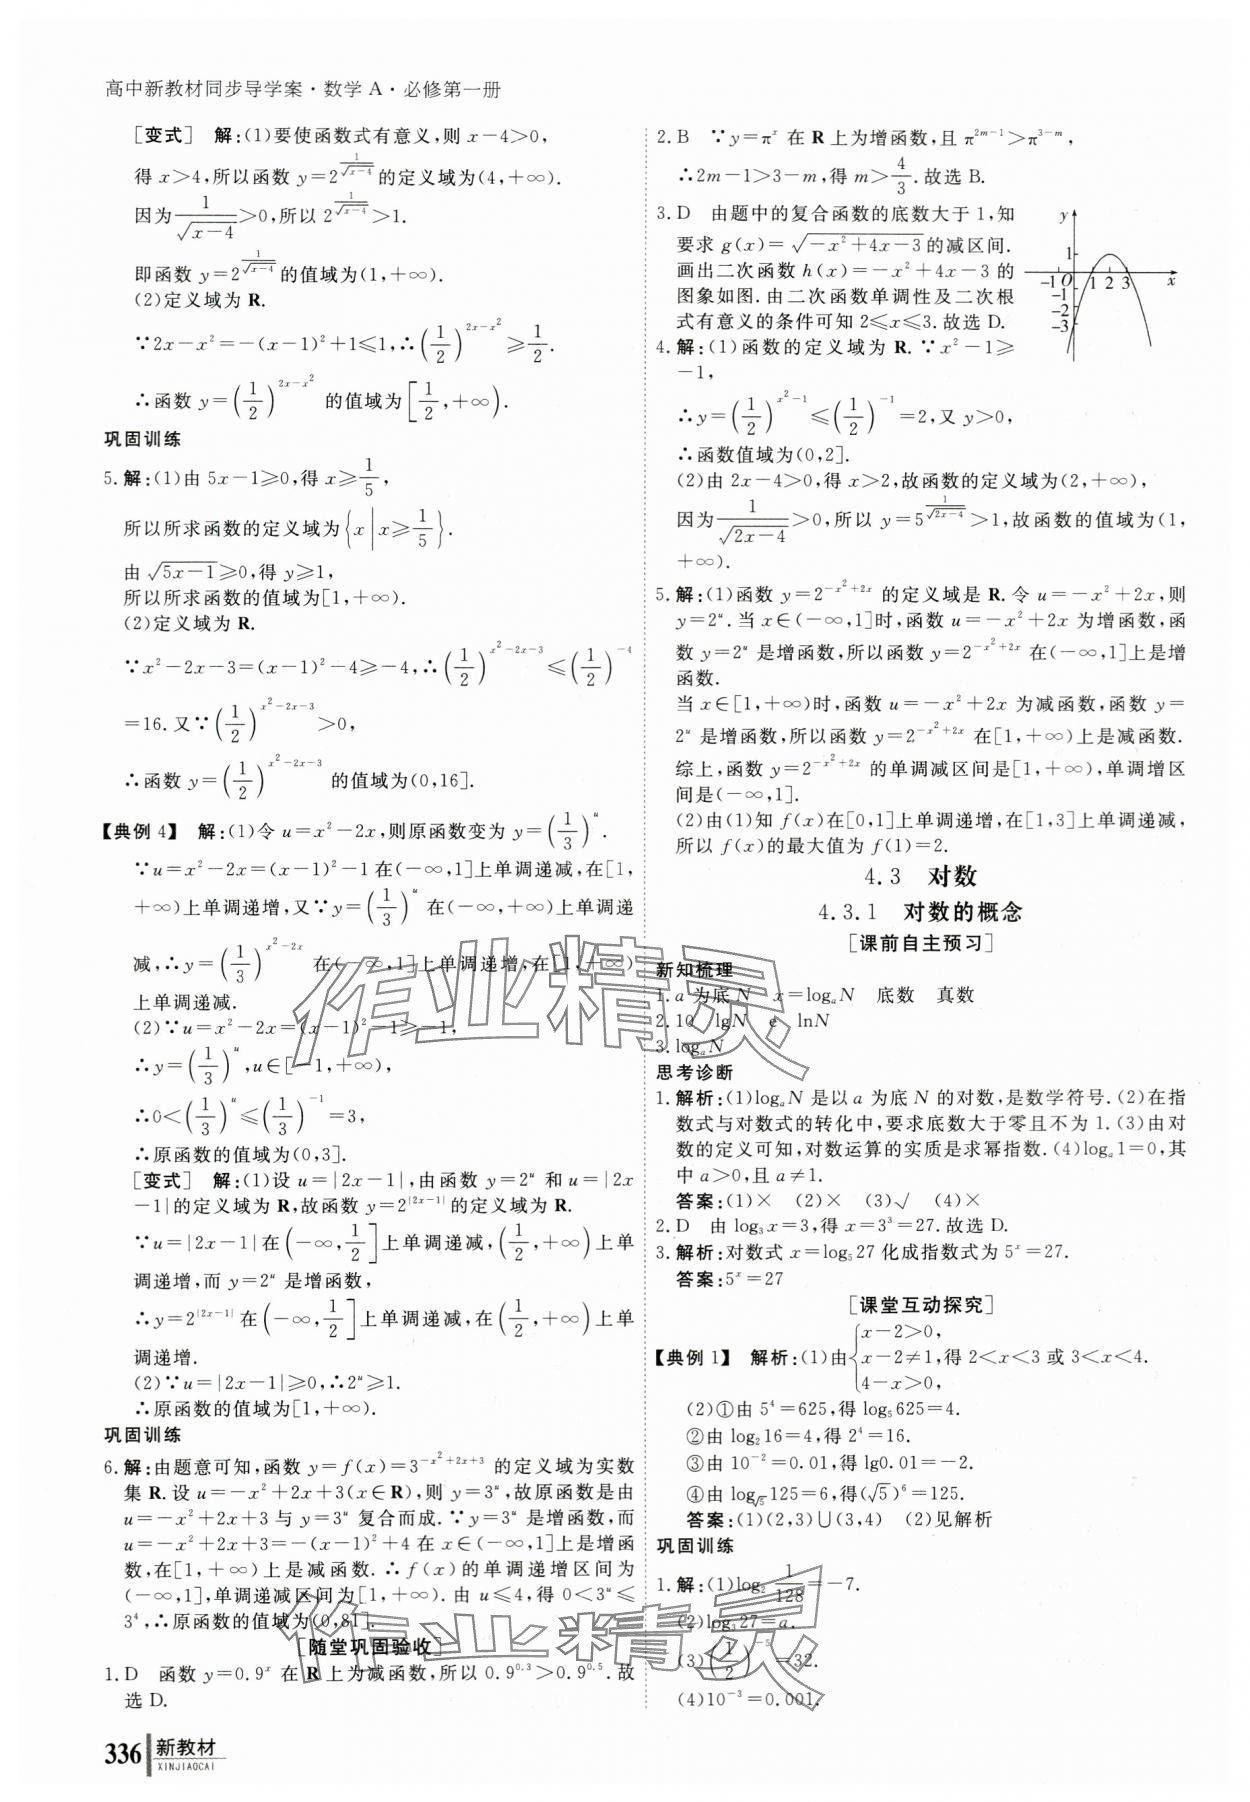 高中新教材同步导学案·数学 A·必修第一册
[变式] 解:(1)要使函数式有意义,则 x-4>0,
得 x>4,所以函数 y=2^{1/√(x-4)} 的定义域为(4,+∞).
因为 1/√(x-4)>0,所以 2^{1/√(x-4)}>1.
即函数 y=2^{1/√(x-4)} 的值域为(1,+∞).
(2)定义域为 R.
∵2x-x²=-(x-1)²+1≤1,∴(1/2)^{2x-x²}≥1/2.
∴函数 y=(1/2)^{2x-x²} 的值域为[1/2,+∞).
巩固训练
5.解:(1)由 5x-1≥0,得 x≥1/5,
所以所求函数的定义域为{x|x≥1/5}.
由 √(5x-1)≥0,得 y≥1,
所以所求函数的值域为[1,+∞).
(2)定义域为 R.
∵x²-2x-3=(x-1)²-4≥-4,∴(1/2)^{x²-2x-3}≤(1/2)^{-4}
=16.又∵(1/2)^{x²-2x-3}>0,
∴函数 y=(1/2)^{x²-2x-3} 的值域为(0,16].
【典例 4】 解:(1)令 u=x²-2x,则原函数变为 y=(1/3)^u.
∵u=x²-2x=(x-1)²-1 在(-∞,1]上单调递减,在[1,
+∞)上单调递增,又∵y=(1/3)^u 在(-∞,+∞)上单调递
减,∴y=(1/3)^{x²-2x} 在(-∞,1]上单调递增,在[1,+∞)
上单调递减.
(2)∵u=x²-2x=(x-1)²-1≥-1,
∴y=(1/3)^u,u∈[-1,+∞),
∴0<(1/3)^u≤(1/3)^{-1}=3,
∴原函数的值域为(0,3].
[变式] 解:(1)设 u=|2x-1|,由函数 y=2^u 和 u=|2x
-1|的定义域为 R,故函数 y=2^{|2x-1|}的定义域为 R.
∵u=|2x-1|在(-∞,1/2]上单调递减,(1/2,+∞)上单
调递增,而 y=2^u 是增函数,
∴y=2^{|2x-1|}在(-∞,1/2]上单调递减,在(1/2,+∞)上单
调递增.
(2)∵u=|2x-1|≥0,∴2^u≥1.
∴原函数的值域为[1,+∞).
巩固训练
6.解:由题意可知,函数 y=f(x)=3^{-x²+2x+3} 的定义域为实数
集 R.设 u=-x²+2x+3(x∈R),则 y=3^u,故原函数是由
u=-x²+2x+3 与 y=3^u 复合而成.∵y=3^u 是增函数,而
u=-x²+2x+3=-(x-1)²+4 在 x∈(-∞,1]上是增函
数,在[1,+∞)上是减函数.∴f(x)的单调递增区间为
(-∞,1],单调递减区间为[1,+∞).由 u≤4,得 0<3^u≤
3⁴,∴原函数的值域为(0,81].
[随堂巩固验收]
1.D 函数 y=0.9^x 在 R 上为减函数,所以 0.9^{0.3}>0.9^{0.5}.故
选 D.
336 新教材
XINJIAOCAI
2.B ∵y=π^x 在 R 上为增函数,且 π^{2m-1}>π^{3-m},
∴2m-1>3-m,得 m>4/3.故选 B.
3.D 由题中的复合函数的底数大于 1,知
要求 g(x)=√(-x²+4x-3)的减区间.
画出二次函数 h(x)=-x²+4x-3 的
图象如图.由二次函数单调性及二次根
式有意义的条件可知 2≤x≤3.故选 D.
y
1
-1 O 1 2 3 x
-1
-2
-3
4.解:(1)函数的定义域为 R.∵x²-1≥
-1,
∴y=(1/2)^{x²-1}≤(1/2)^{-1}=2,又 y>0,
∴函数值域为(0,2].
(2)由 2x-4>0,得 x>2,故函数的定义域为(2,+∞),
因为 1/√(2x-4)>0,所以 y=5^{1/√(2x-4)}>1,故函数的值域为(1,
+∞).
5.解:(1)函数 y=2^{-x²+2x} 的定义域是 R.令 u=-x²+2x,则
y=2^u.当 x∈(-∞,1]时,函数 u=-x²+2x 为增函数,函
数 y=2^u 是增函数,所以函数 y=2^{-x²+2x} 在(-∞,1]上是增
函数.
当 x∈[1,+∞)时,函数 u=-x²+2x 为减函数,函数 y=
2^u 是增函数,所以函数 y=2^{-x²+2x} 在[1,+∞)上是减函数.
综上,函数 y=2^{-x²+2x} 的单调减区间是[1,+∞),单调增区
间是(-∞,1].
(2)由(1)知 f(x)在[0,1]上单调递增,在[1,3]上单调递减,
所以 f(x)的最大值为 f(1)=2.
4.3 对数
4.3.1 对数的概念
[课前自主预习]
新知梳理
1.a 为底 N x=log_a N 底数 真数
2.10 lgN e lnN
3.log_a N
思考诊断
1.解析:(1)log_a N 是以 a 为底 N 的对数,是数学符号.(2)在指
数式与对数式的转化中,要求底数大于零且不为 1.(3)由对
数的定义可知,对数运算的实质是求幂指数.(4)log_a 1=0,其
中 a>0,且 a≠1.
答案:(1)× (2)× (3)√ (4)×
2.D 由 log₃x=3,得 x=3³=27.故选 D.
3.解析:对数式 x=log₅27 化成指数式为 5^x=27.
答案:5^x=27
[课堂互动探究]
【典例 1】 解析:(1)由{x-2>0, x-2≠1, 4-x>0, 得 2<x<3 或 3<x<4.
(2)①由 5⁴=625,得 log₅625=4.
②由 log₂16=4,得 2⁴=16.
③由 10⁻²=0.01,得 lg0.01=-2.
④由 log_{√5}125=6,得(√5)⁶=125.
答案:(1)(2,3)∪(3,4) (2)见解析
巩固训练
1.解:(1)log₂ 1/128=-7.
(2)log₃27=a.
(3)(1/2)^{-5}=32.
(4)10⁻³=0.001.
作业精灵
作业精灵